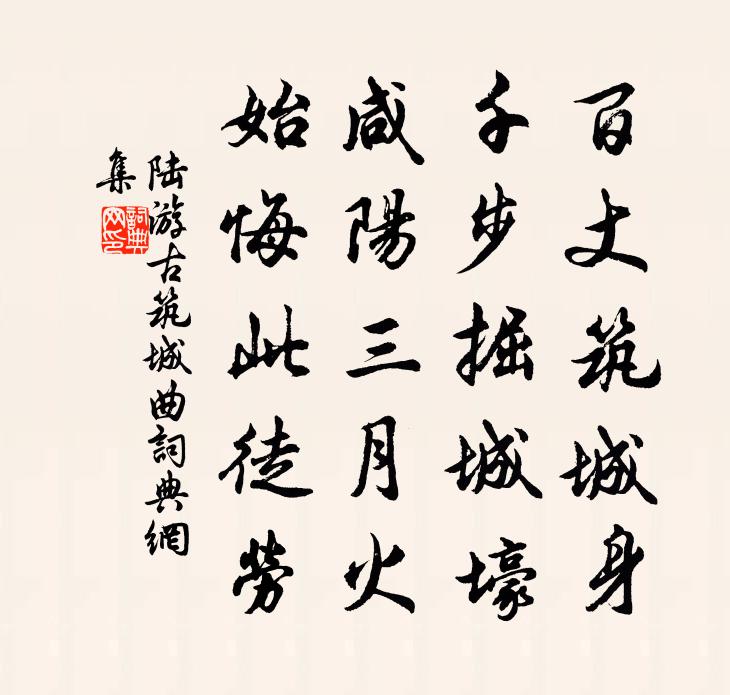 百丈筑城身
千步掘城壕
咸陽三月火
始悔此徒勞
陆游古筑城曲詞典網
集
詞典
网印